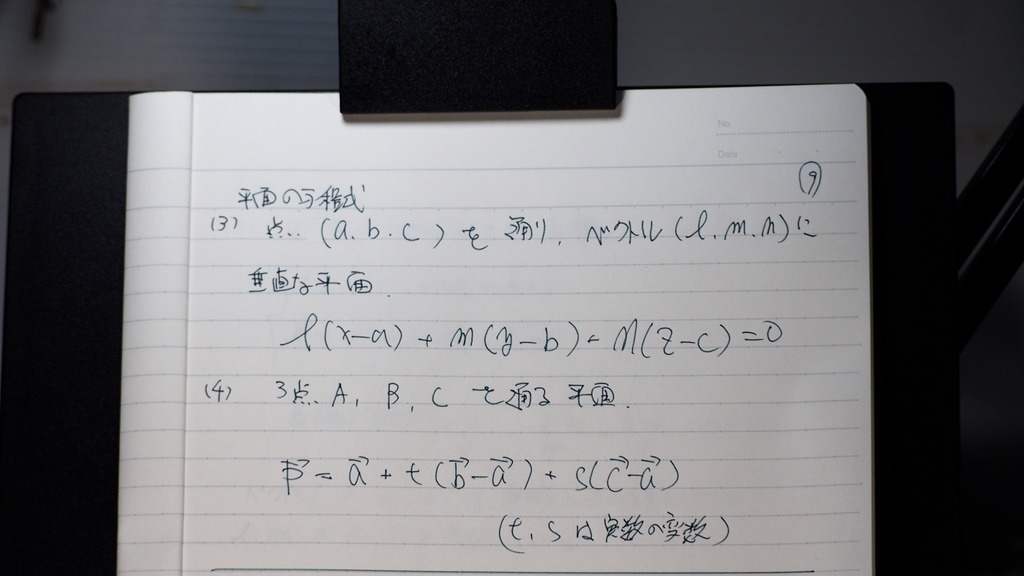 No.
Date
⑨
平面の方程式
(3) 点 (a.b.c) を通り, ベクトル (l.m.n) に
垂直な平面.
l(x-a) + m(y-b) + n(z-c) = 0
(4) 3点 A, B, C を通る平面.
p⃗ = a⃗ + t(b⃗-a⃗) + s(c⃗-a⃗)
(t, s は実数の変数)